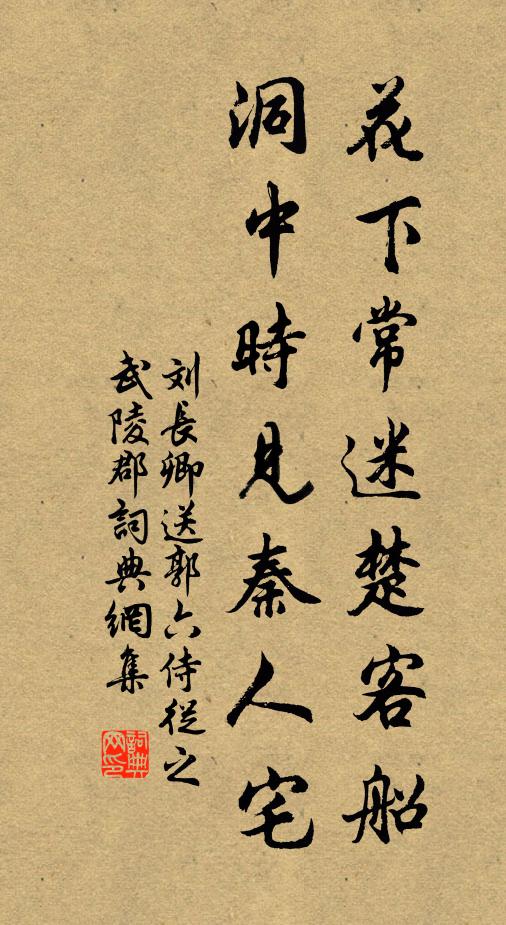 花下常迷楚客船
洞中時見秦人宅
刘長卿送郭六侍從之
武陵郡詞典網集
詞典网印